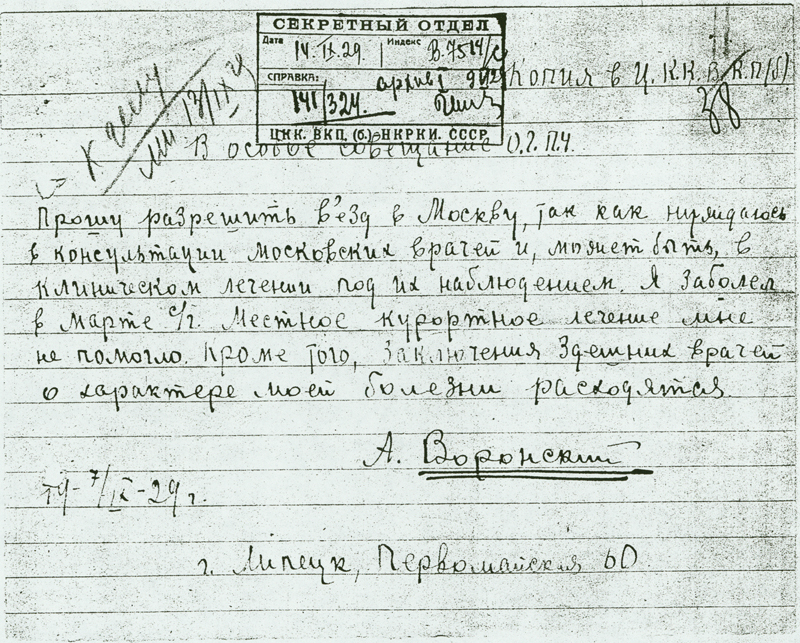 СЕКРЕТНЫЙ ОТДЕЛ
Дата 14.IX.29 Индекс В.7514/с
СПРАВКА: архив I
141 324
ЦКК. ВКП. (б.)-НКРКИ. СССР.
13/IX 29
Копия в Ц.К.К. В.К.П(б)
38
В особое совещание О.Г.П.У.
Прошу разрешить в'езд в Москву, так как нуждаюсь
в консультации московских врачей и, может быть, в
клиническом лечении под их наблюдением. Я заболел
в марте с/г. Местное курортное лечение мне
не помогло. Кроме того, заключения здешних врачей
о характере моей болезни расходятся.
А. Воронский
7/IX-29 г.
г. Липецк, Первомайская 60